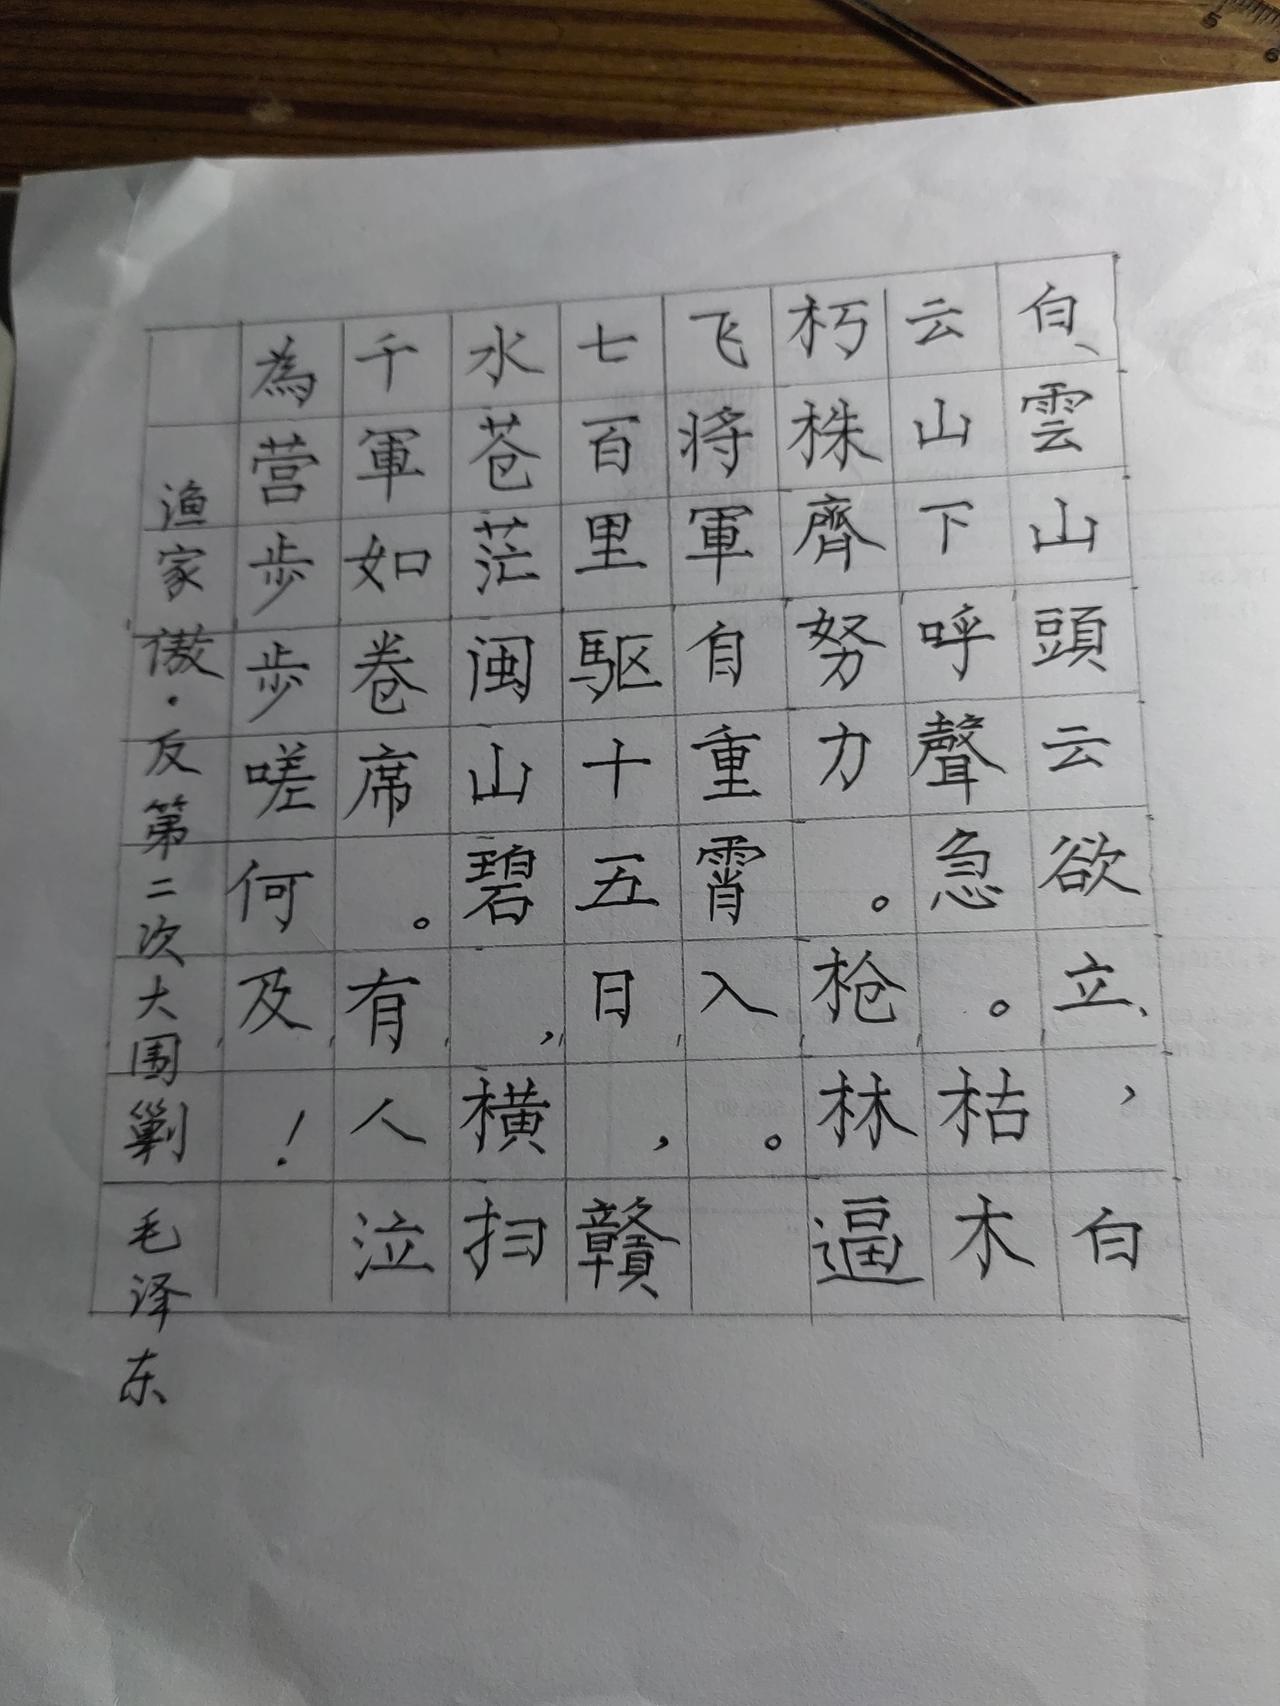 白雲山頭云欲立，白
云山下呼聲急。枯木
朽株齊努力。枪林逼
飞将軍自重霄入。
七百里驱十五日，贛
水苍茫闽山碧，横扫
千軍如卷席。有人泣
為营步步嗟何及！
渔家傲·反第二次大围剿 毛泽东
5 6